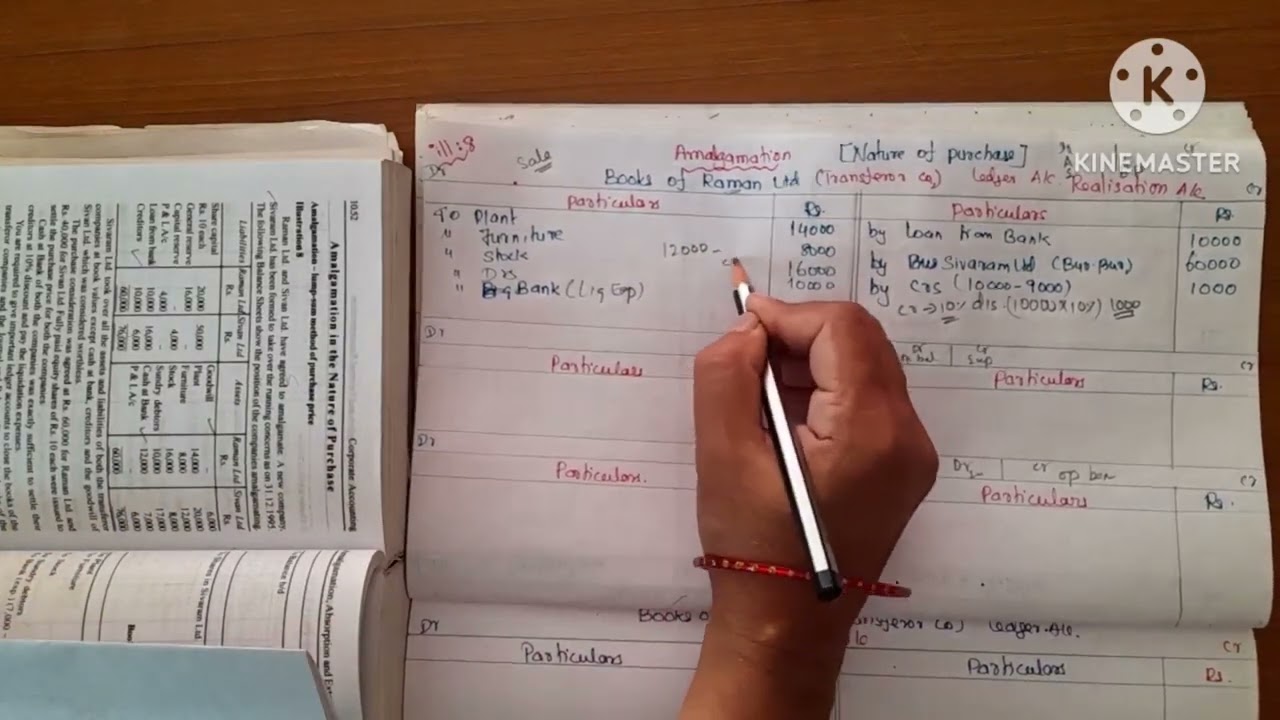 K
KINEMASTER
ill:8
Sale
Amalgamation [Nature of purchase]
Cr
Dr
Books of Raman Ltd (Transferor Co,) Ledger A/c. Realisation A/c.
Cr
Particulars Rs. Particulars Rs.
To Plant 14000 by Loan from Bank 10000
" Furniture 8000 by Sivaram Ltd (Bur.Pur) 60000
" Stock 12000 - 16000 by Crs (10000-9000) 1000
" Drs 10000 Cr → 10% dis (10000x10%) 1000
" Bank (Liq Exp)
Dr
Dr Cr
Sup
Cr
Particulars Particulars Rs.
Dr
Dr Cr
Cr
Particulars. Particulars Rs.
Books o
Ledger A/c.
Dr
Cr
Particulars Particulars Rs.
10.52 Corporate Accounting
Amalgamation in the Nature of Purchase
Amalgamation - lump-sum method of purchase price
Illustration 8
Raman Ltd and Sivan Ltd. have agreed to amalgamate. A new company,
Sivaram Ltd has been formed to take over the running concerns as on 31.12.1995.
The following Balance Sheets show the position of the companies amalgamating.
Liabilities Raman Ltd Sivan Ltd Assets Raman Ltd Sivan Ltd
Rs. Rs. Rs. Rs.
Share capital Goodwill - 6,000
Rs. 10 each 20,000 50,000 Plant 14,000 20,000
General reserve 16,000 - Furniture 8,000 12,000
Capital reserve - 4,000 Stock 16,000 8,000
P & L A/c 4,000 - Sundry debtors 10,000 17,000
Loan from bank 10,000 16,000 Cash at Bank 12,000 7,000
Creditors 10,000 6,000 P & L A/c - 6,000
60,000 76,000 60,000 76,000
Sivaram Ltd took over all the assets and liabilities of both the transferor
companies at book values except cash at bank, creditors and the goodwill of
Sivan Ltd. which was considered worthless.
The purchase consideration was agreed at Rs. 60,000 for Raman Ltd. and
Rs. 40,000 for Sivan Ltd Fully paid equity shares of Rs. 10 each were issued to
settle the purchase price for both the companies.
Cash at Bank of both the companies was exactly sufficient to settle their
creditors at 10% discount and pay the liquidation expenses.
You are required to give important ledger accounts to close the books of the